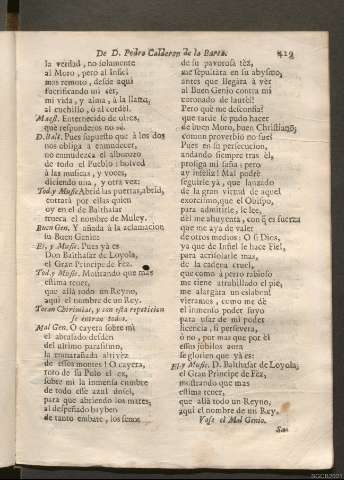 De D. Pedro Calderon de la Barca. 429
la verdad, no solamente
al Moro, pero al Infiel
mas remoto, desde aqui
sacrificando mi ser,
mi vida, y alma, à la llama,
al cuchillo, ò al cordèl.
Maest. Enternecido de oìros,
que responderos no sè.
D. Balt. Pues supuesto que à los dos
nos obliga à enmudecer,
no enmudezca el alborozo
de todo el Pueblo: bolved
à las musicas, y voces,
diciendo una, y otra vez:
Tod. y Music. Abrid las puertas, abrid,
entrarà por ellas quien
oy en el de Balthasar
trueca el nombre de Muley.
Buen Gen. Y añada à la aclamacion
su Buen Genio:
El, y Music. Pues yà es
Don Balthasar de Loyola,
el Gran Principe de Fez.
Tod. y Music. Mostrando que mas
estima tener,
que allà todo un Reyno,
aqui el nombre de un Rey.
Tocan Chirimias, y con esta repeticion
se entran todos.
Mal Gen. O cayera sobre mi
el abrasado desden
del ultimo parasismo,
la enmarañada altivèz
de essos montes! O cayera,
roto de su Polo el ex,
sobre mi la inmensa cumbre
de todo esse azul dosèl,
para que abriendo los mares,
al despeñado bayben
de tanto embate, los senos
de su pavorosa tèz,
me sepultàra en su abysmo,
antes que llegàra à vèr
al Buen Genio contra mi
coronado de laurèl!
Pero què me desconfia?
que tarde se pudo hacer
de buen Moro, buen Christiano,
comun proverbio no fue?
Pues en su persecucion,
andando siempre tras èl,
prosiga mi saña: pero
ay infeliz! Mal podrè
seguirle yà, que lanzado
de la gran virtud de aquel
exorcismo, que el Obispo,
para admitirle, le lee,
dèl me ahuyenta, con q̃ es fuerza
que me aya de valer
de otros medios: O si Dios,
ya que de Infiel le hace Fiel,
para acrisolarle mas,
de la cadena cruel,
que como à perro rabioso
me tiene atrabillado el pie,
me alargàra un eslabon!
vieramos, como me dè
el inmenso poder suyo
para usar de mi poder
licencia, si persevera,
ò no, por mas que por èl
essos jubilos aora
se glorien que yà es:
El, y Music. D. Balthasar de Loyola,
el Gran Principe de Fez,
mostrando que mas
estima tener,
que allà todo un Reyno,
aqui el nombre de un Rey.
Vase el Mal Genio.